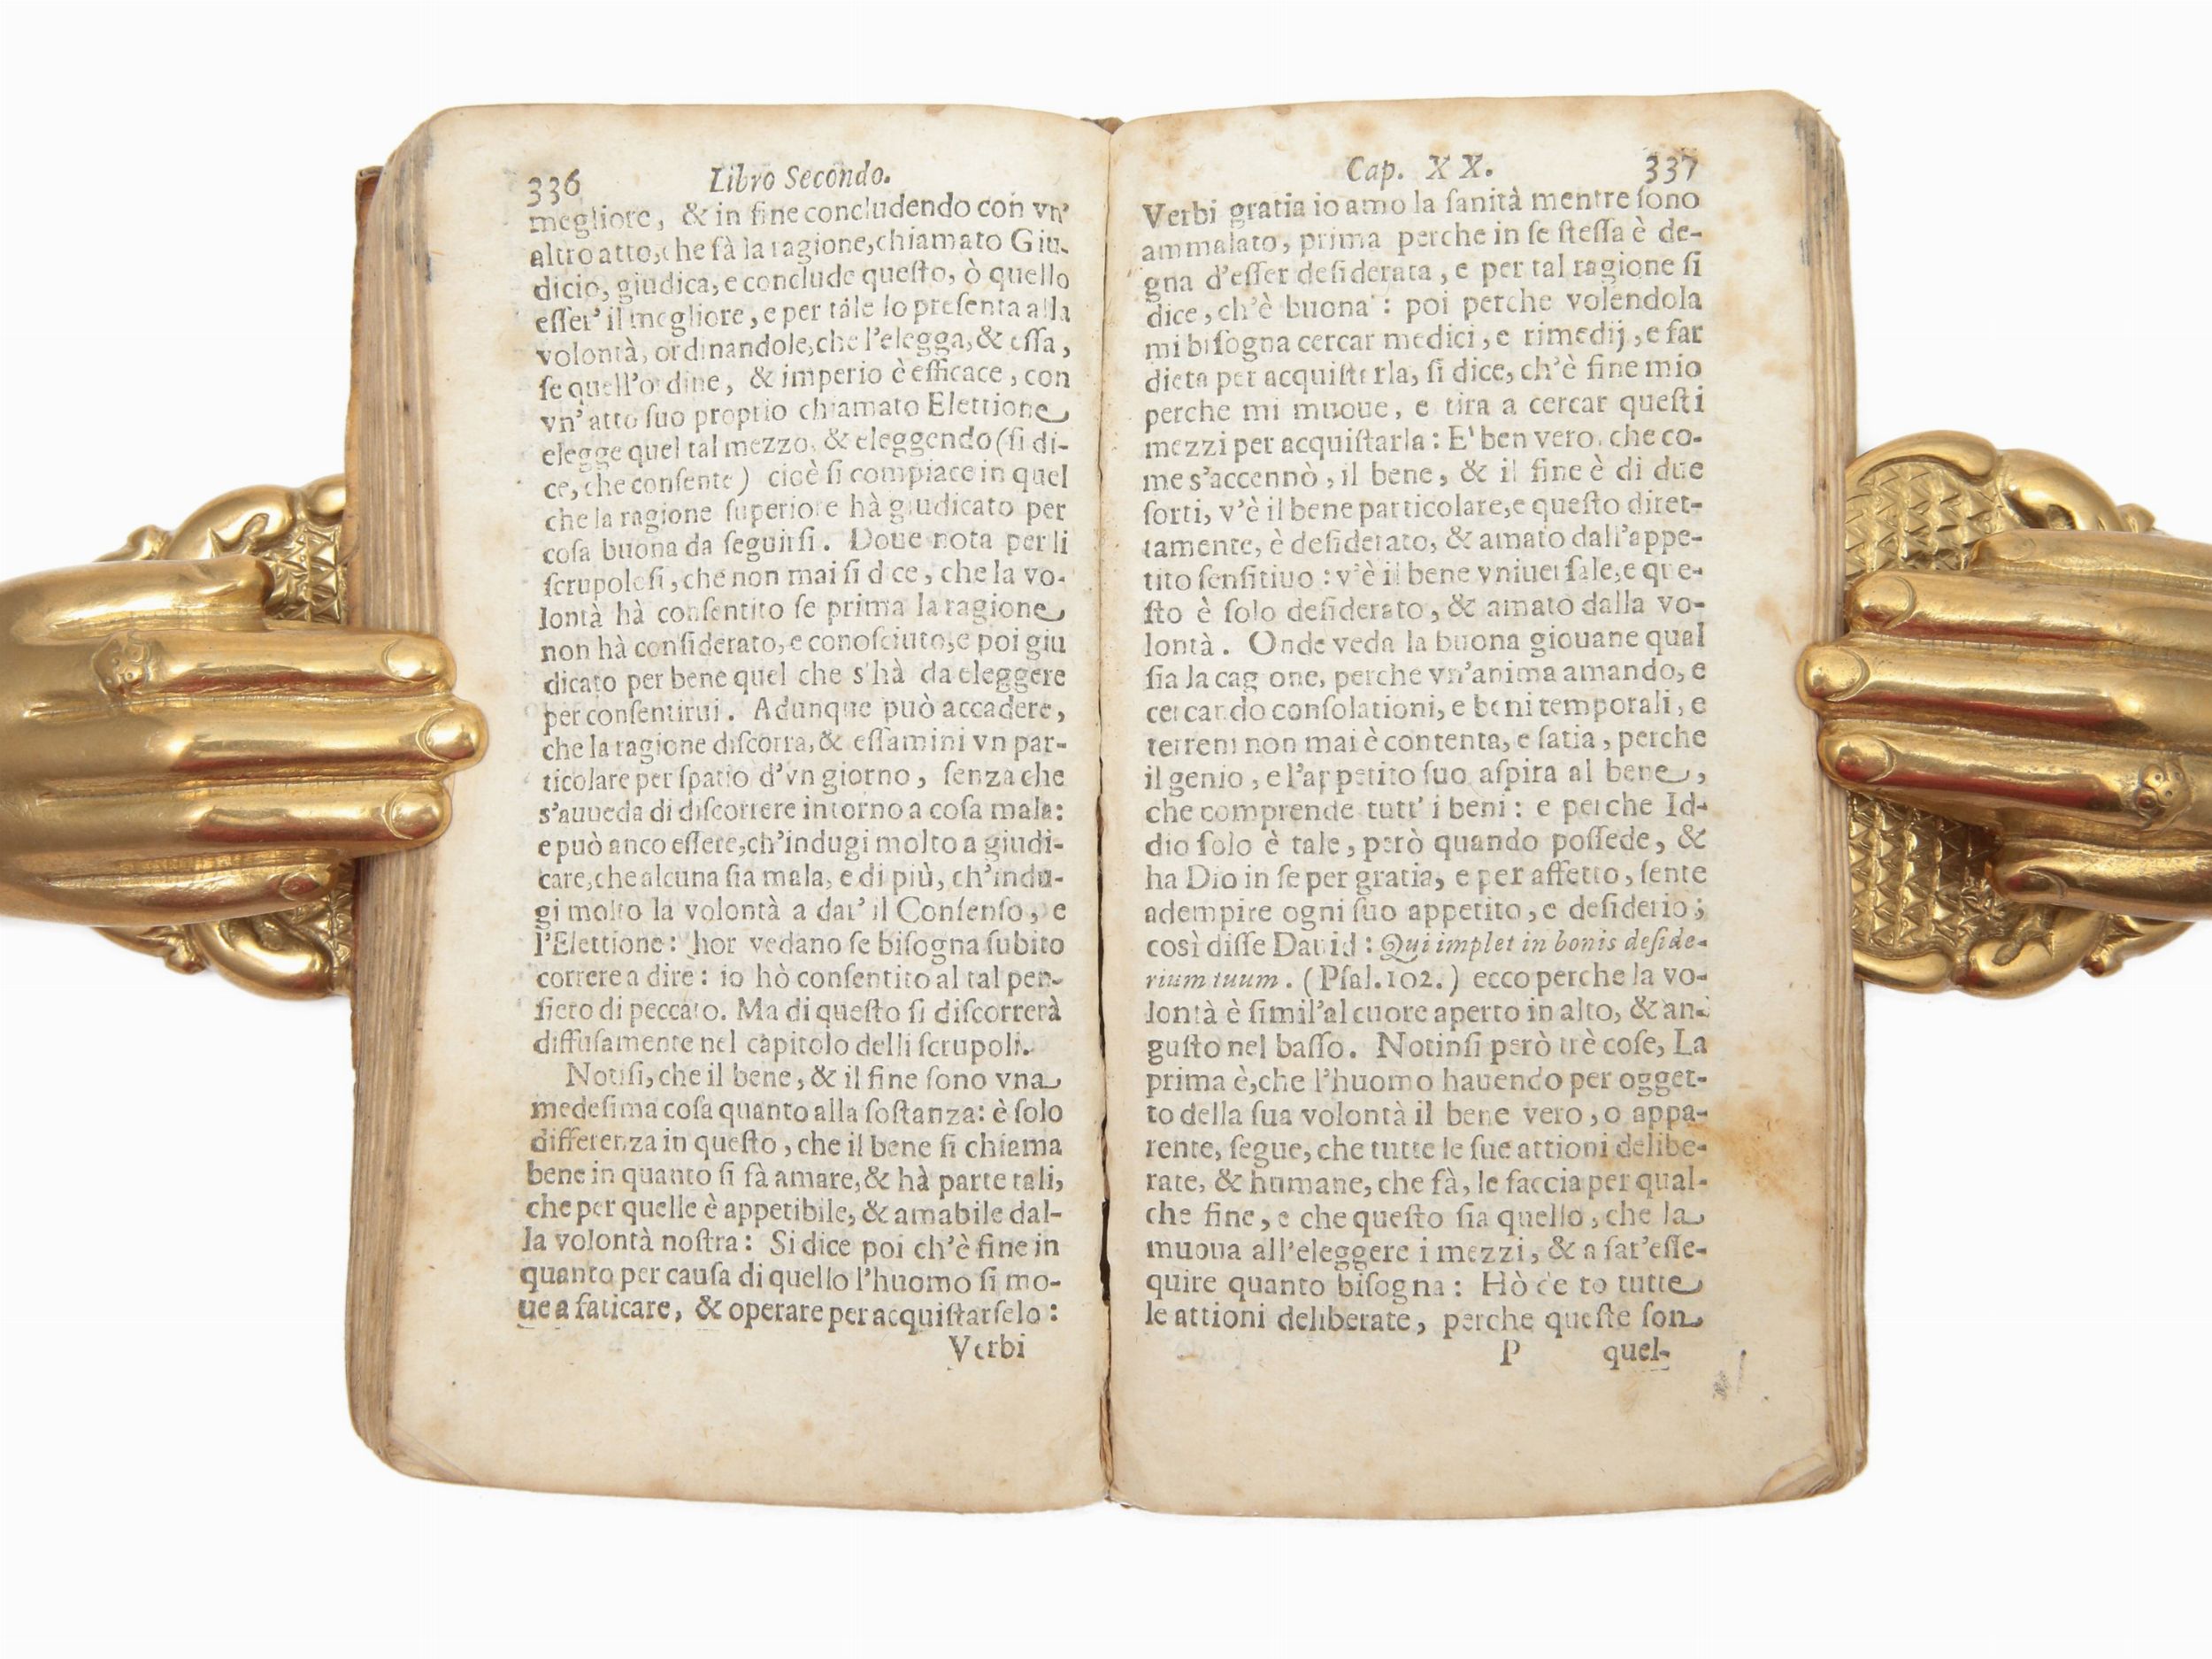 336 Libro Secondo.
megliore, & in fine concludendo con vn'
altro atto, che fà la ragione, chiamato Giu-
dicio, giudica, e conclude queſto, ò quello
eſſer' il megliore, e per tale lo preſenta alla
volontà, ordinandole, che l'elegga, & eſſa,
ſe quell'ordine, & imperio è efficace, con
vn' atto ſuo proprio chiamato Elettione
elegge quel tal mezzo, & eleggendo (ſi di-
ce, che conſente) cioè ſi compiace in quel
che la ragione ſuperiore hà giudicato per
coſa buona da ſeguirſi. Doue nota per li
ſcrupoloſi, che non mai ſi dice, che la vo-
lontà hà conſentito ſe prima la ragione
non hà conſiderato, e conoſciuto, e poi giu
dicato per bene quel che s'hà da eleggere
per conſentirui. Adunque può accadere,
che la ragione diſcorra, & eſſamini vn par-
ticolare per ſpatio d'vn giorno, ſenza che
s'auueda di diſcorrere intorno a coſa mala:
e può anco eſſere, ch'indugi molto a giudi-
care, che alcuna ſia mala, e di più, ch'indu-
gi molto la volontà a dar' il Conſenſo, e
l'Elettione: hor vedano ſe biſogna ſubito
correre a dire: io hò conſentito al tal pen-
ſiero di peccato. Ma di queſto ſi diſcorrerà
diffuſamente nel capitolo delli ſcrupoli.
Notiſi, che il bene, & il fine ſono vna
medeſima coſa quanto alla ſoſtanza: è ſolo
differenza in queſto, che il bene ſi chiama
bene in quanto ſi fà amare, & hà parte tali,
che per quelle è appetibile, & amabile dal-
la volontà noſtra: Si dice poi ch'è fine in
quanto per cauſa di quello l'huomo ſi mo-
ue a faticare, & operare per acquiſtarſelo:
Verbi
Cap. XX. 337
Verbi gratia io amo la ſanità mentre ſono
ammalato, prima perche in ſe ſteſſa è de-
gna d'eſſer deſiderata, e per tal ragione ſi
dice, ch'è buona: poi perche volendola
mi biſogna cercar medici, e rimedij, e far
dieta per acquiſtarla, ſi dice, ch'è fine mio
perche mi muoue, e tira a cercar queſti
mezzi per acquiſtarla: E' ben vero, che co-
me s'accennò, il bene, & il fine è di due
ſorti, v'è il bene particolare, e queſto diret-
tamente, è deſiderato, & amato dall'appe-
tito ſenſitiuo: v'è il bene vniuerſale, e que-
ſto è ſolo deſiderato, & amato dalla vo-
lontà. Onde veda la buona giouane qual
ſia la cagione, perche vn'anima amando, e
cercando conſolationi, e beni temporali, e
terreni non mai è contenta, e ſatia, perche
il genio, e l'appetito ſuo aſpira al bene,
che comprende tutt' i beni: e perche Id-
dio ſolo è tale, però quando poſſede, &
ha Dio in ſe per gratia, e per affetto, ſente
adempire ogni ſuo appetito, e deſiderio;
così diſſe Dauid: Qui implet in bonis deſide-
rium tuum. (Pſal. 102.) ecco perche la vo-
lontà è ſimil'al cuore aperto in alto, & an-
guſto nel baſſo. Notinſi però trè coſe, La
prima è, che l'huomo hauendo per ogget-
to della ſua volontà il bene vero, o appa-
rente, ſegue, che tutte le ſue attioni delibe-
rate, & humane, che fà, le faccia per qual-
che fine, e che queſto ſia quello, che la
muoua all'eleggere i mezzi, & a far'eſſe-
quire quanto biſogna: Hò detto tutte
le attioni deliberate, perche queſte ſon
P quel-